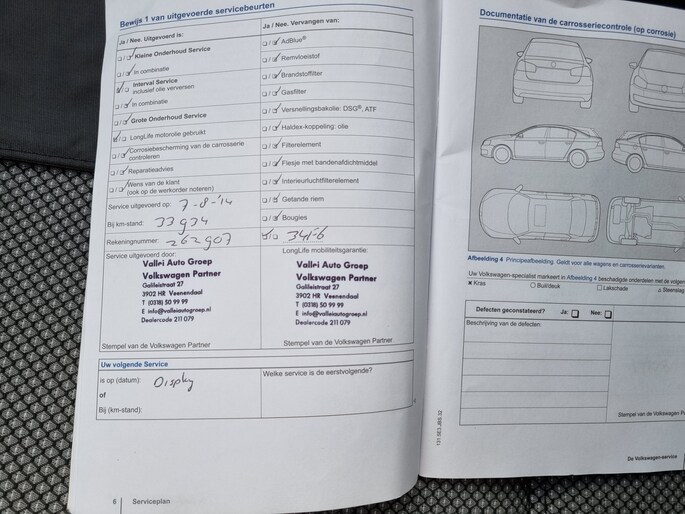 Bewijs 1 van uitgevoerde servicebeurten
Ja / Nee. Uitgevoerd is:
Kleine Onderhoud Service
In combinatie
Interval Service
inclusief olie verversen
In combinatie
Grote Onderhoud Service
LongLife motorolie gebruikt
Corrosiebescherming van de carrosserie
controleren
Reparatieadvies
Wens van de klant
(ook op de werkorder noteren)
Service uitgevoerd op: 7-8-'14
Bij km-stand: 33934
Rekeningnummer: 262907
Service uitgevoerd door:
Vallei Auto Groep
Volkswagen Partner
Galileistraat 27
3902 HR Veenendaal
T (0318) 50 99 99
E info@valleiautogroep.nl
Dealercode 211 079
Stempel van de Volkswagen Partner
Ja / Nee. Vervangen van:
AdBlue®
Remvloeistof
Brandstoffilter
Gasfilter
Versnellingsbakolie: DSG®, ATF
Haldex-koppeling: olie
Filterelement
Flesje met bandenafdichtmiddel
Interieurluchtfilterelement
Getande riem
Bougies
LongLife mobiliteitsgarantie:
Vallei Auto Groep
Volkswagen Partner
Galileistraat 27
3902 HR Veenendaal
T (0318) 50 99 99
E info@valleiautogroep.nl
Dealercode 211 079
Stempel van de Volkswagen Partner
Uw volgende Service
is op (datum): Display
of
Bij (km-stand):
Welke service is de eerstvolgende?
6 Serviceplan
Documentatie van de carrosseriecontrole (op corrosie)
Afbeelding 4 Principeafbeelding. Geldt voor alle wagens en carrosserievarianten.
Uw Volkswagen-specialist markeert in Afbeelding 4 beschadigde onderdelen met de volgen
× Kras
○ Buil/deuk
□ Lakschade
△ Steenslag
Defecten geconstateerd? Ja: Nee:
Beschrijving van de defecten:
Stempel van de Volkswagen P
De Volkswagen-service